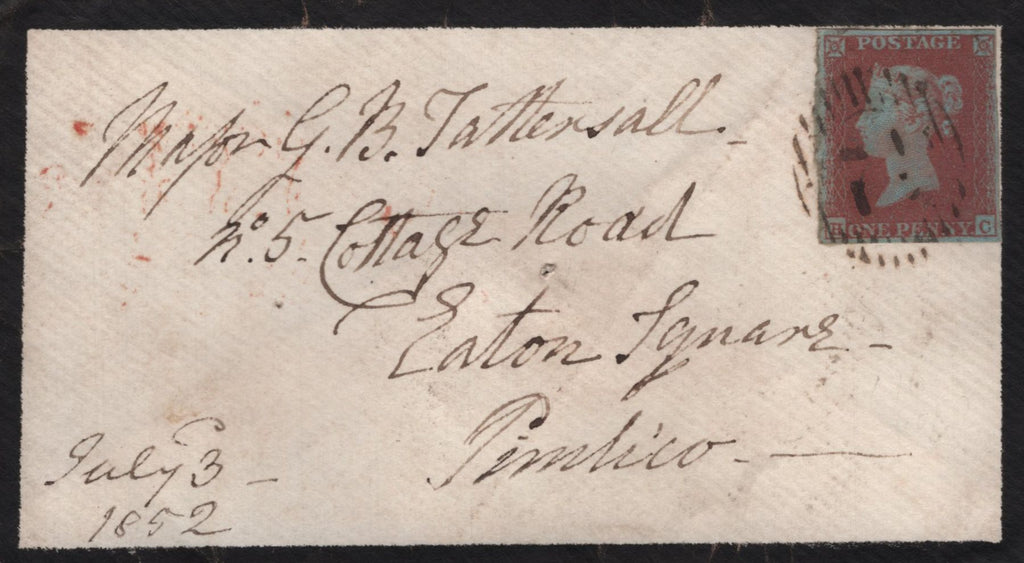 POSTAGE
ONE PENNY C
Major G. B. Tattersall.
No. 5. Cottage Road
Eaton Square
Pimlico
July 3
1852